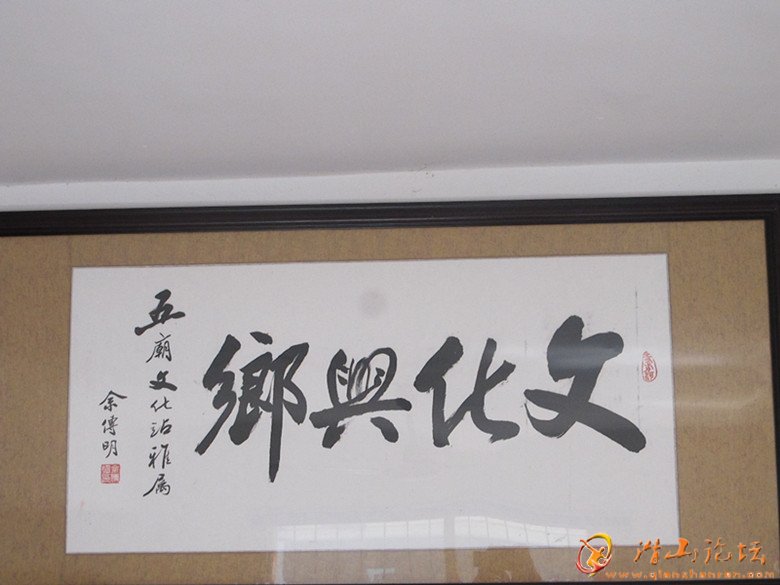 文化興鄉
五廟文化站雅属
余傳明
潜山论坛
www.qianshanren.com